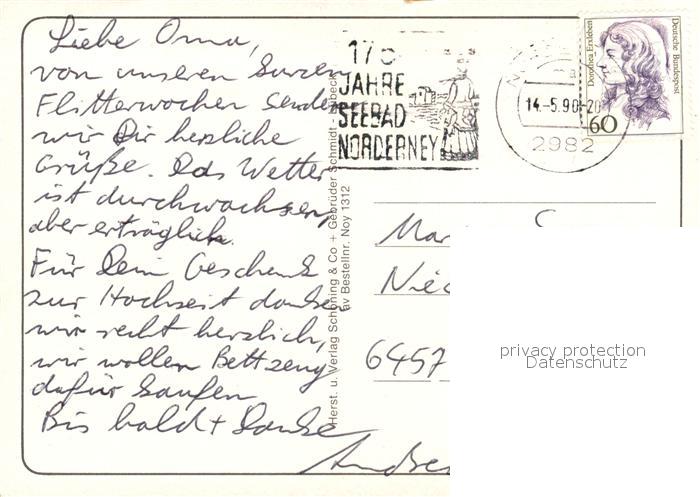 Liebe Oma,
von unseren kurzen
Flitterwochen senden
wir Dir herzliche
Grüße. Das Wetter
ist durchwachsen,
aber erträglich.
Für Dein Geschenk
zur Hochzeit danken
wir recht herzlich,
wir wollen Bettzeug
dafür kaufen
Bis bald + Danke
175
JAHRE
SEEBAD
NORDERNEY
14.-5.90-20
2982
Dorothea Erxleben
Deutsche Bundespost
60
Herst. u. Verlag Schöning & Co + Gebrüder Schmidt · Lübeck
av Bestellnr. Noy 1312
Mar
6457
privacy protection
Datenschutz